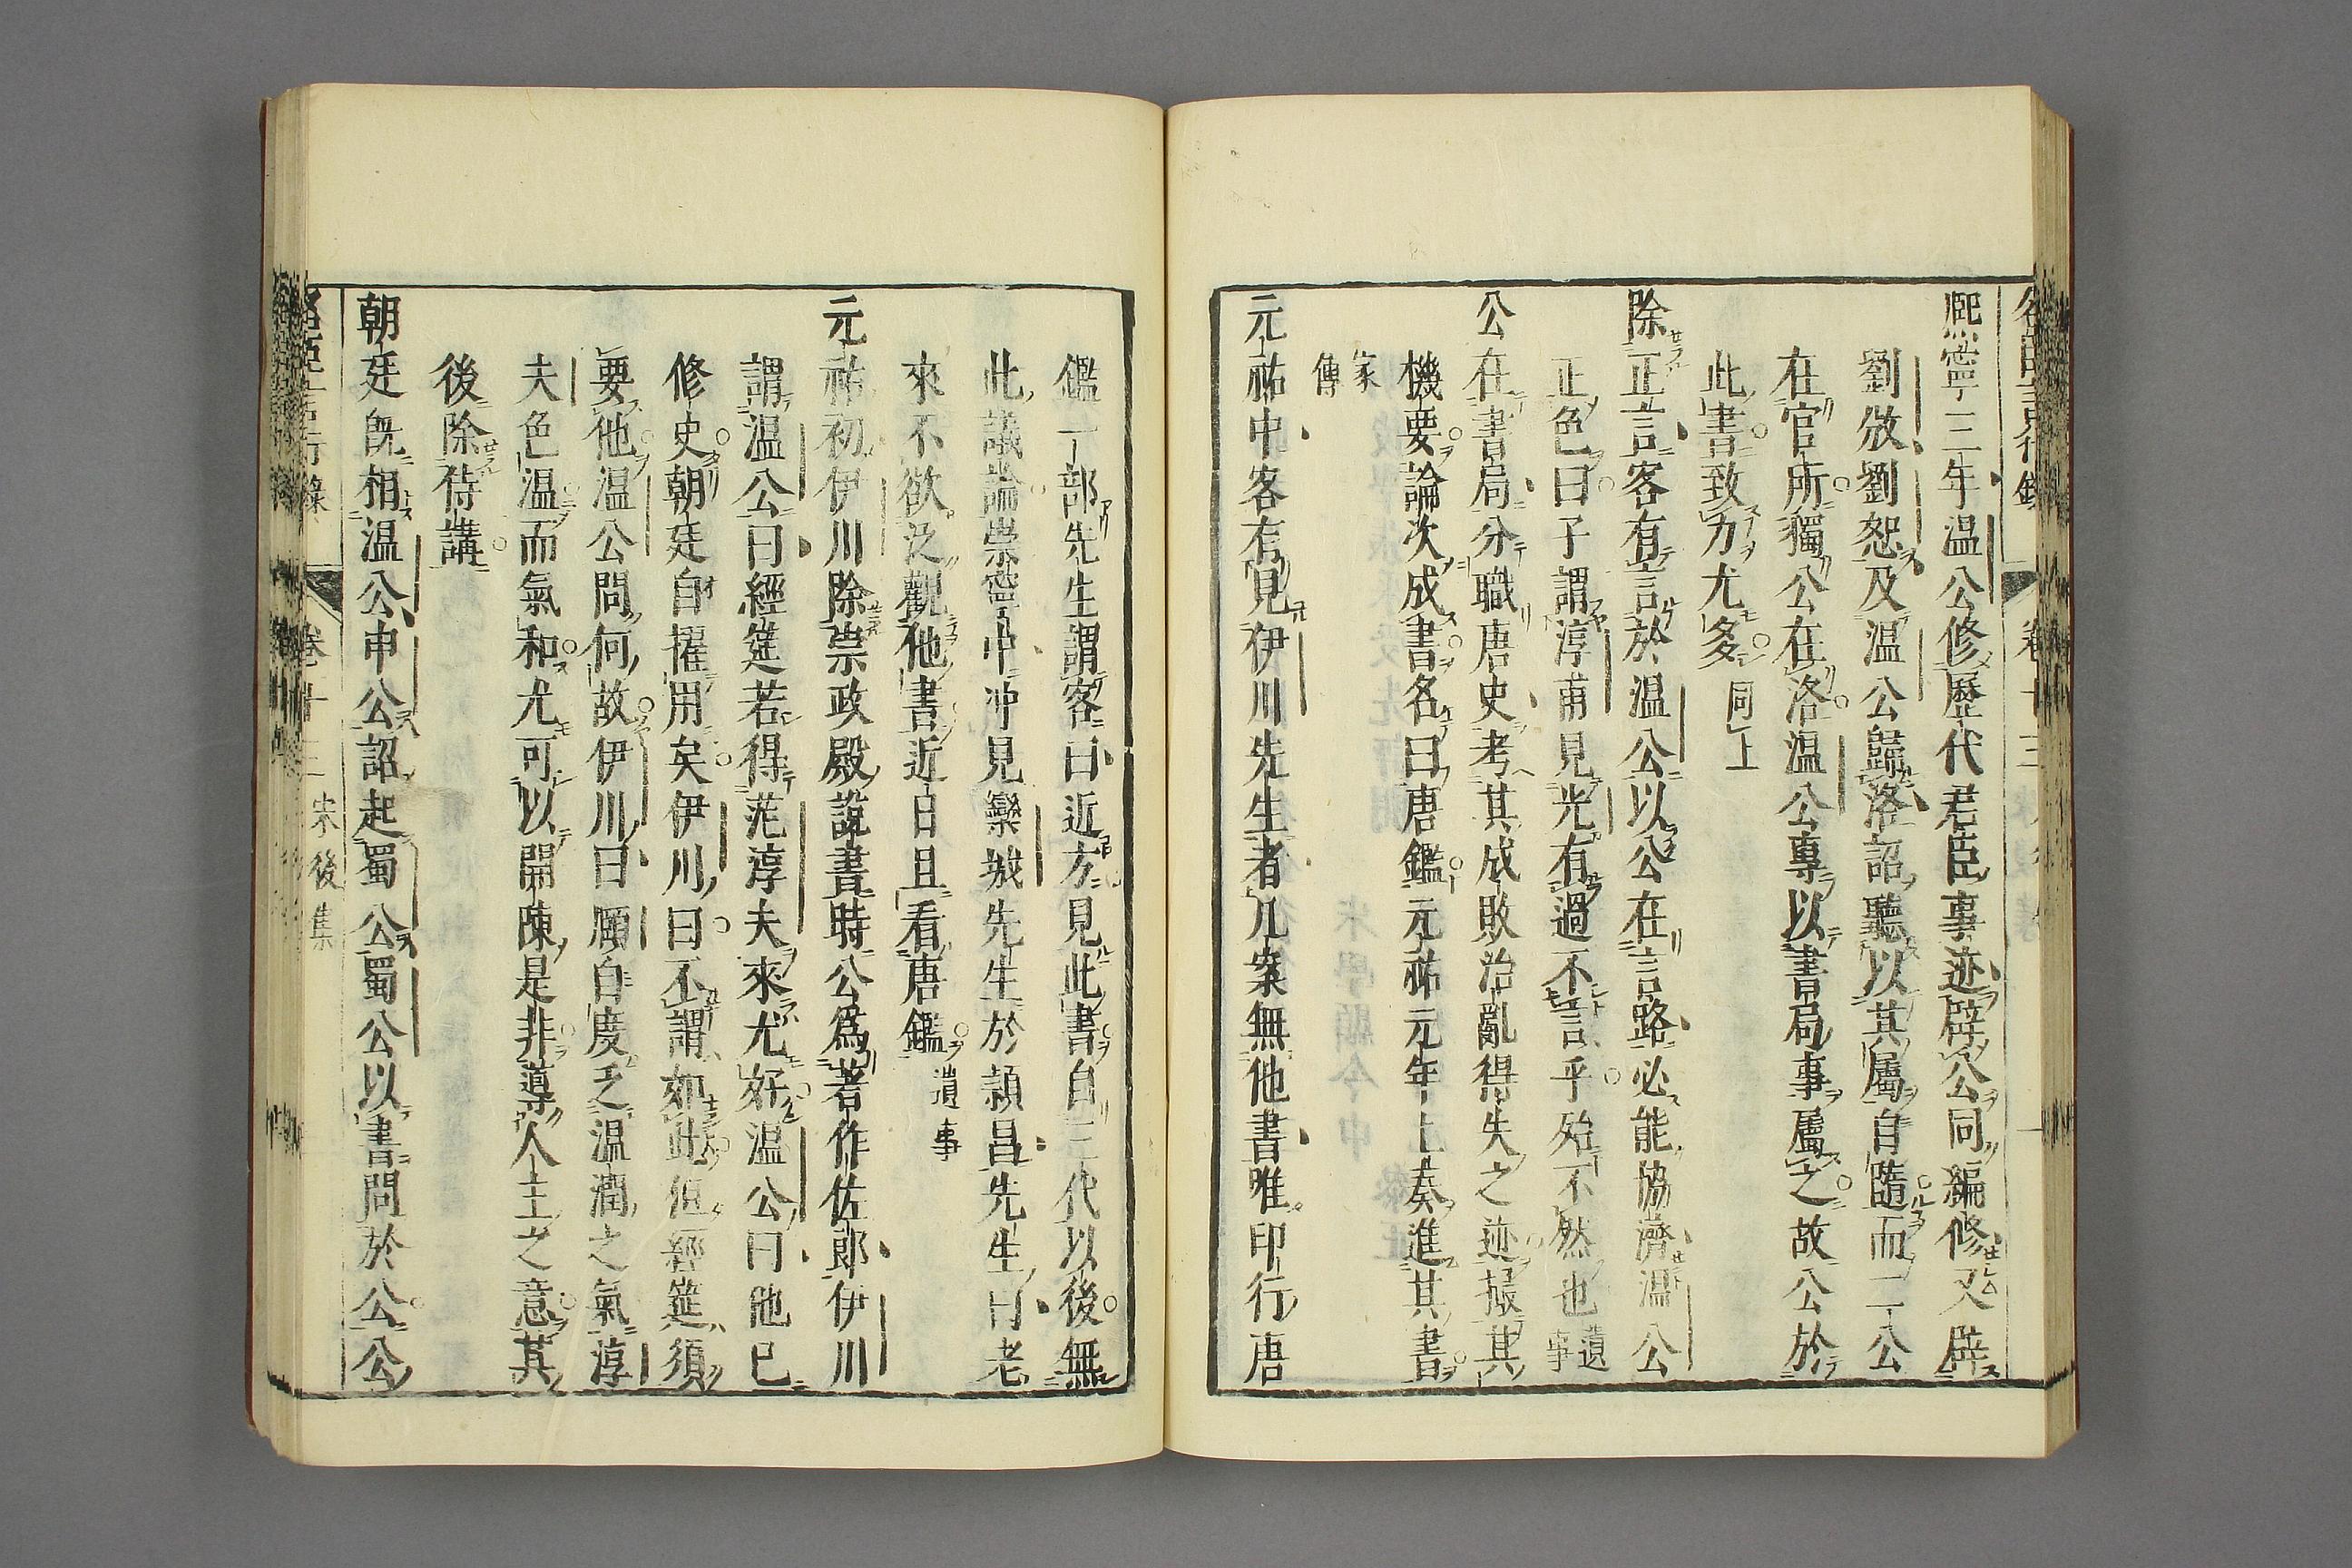 熙寧三年温公修歷代君臣事迹辟公同編修又辟
劉攽劉恕及温公歸洛詔聽以其屬自隨而二公
在官所獨公在洛温公專以書局事屬之故公於
此書致力尤多同上
除正言客有言於温公以公在言路必能協濟温公
正色曰子謂淳甫見光有過不言乎殆不然也遺事
公在書局分職唐史考其成敗治亂得失之迹撮其
機要論次成書名曰唐鑑元祐元年上奏進其書
家傳
元祐中客有見伊川先生者几案無他書唯印行唐
鑑一部先生謂客曰近方見此書自三代以後無
此議論崇寧中冲見欒城先生於潁昌先生曰老
來不欲泛觀他書近日且看唐鑑遺事
元祐初伊川除崇政殿說書時公爲著作佐郎伊川
謂温公曰經筵若得范淳夫來尤好温公曰他已
修史朝廷自擢用矣伊川曰不謂如此但經筵須
要他温公問何故伊川曰頤自度乏温潤之氣淳
夫色温而氣和尤可以開陳是非導人主之意其
後除待講
朝廷既相温公申公詔起蜀公蜀公以書問於公公
卷十三 宋後集